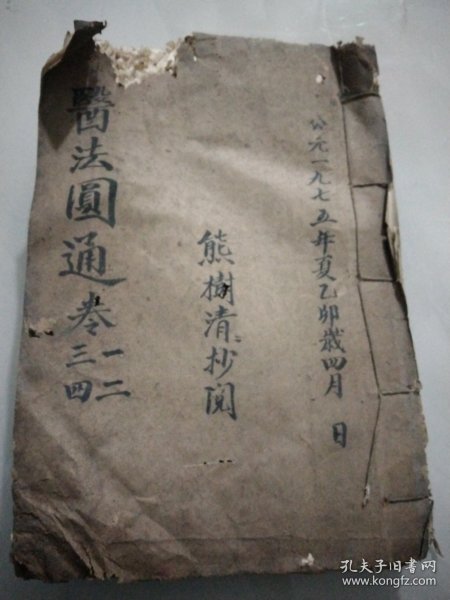 公元一九七五年夏乙卯歲四月 日
熊樹清抄閱
醫法圓通卷一二三四
孔夫子旧书网
www.kongfz.com